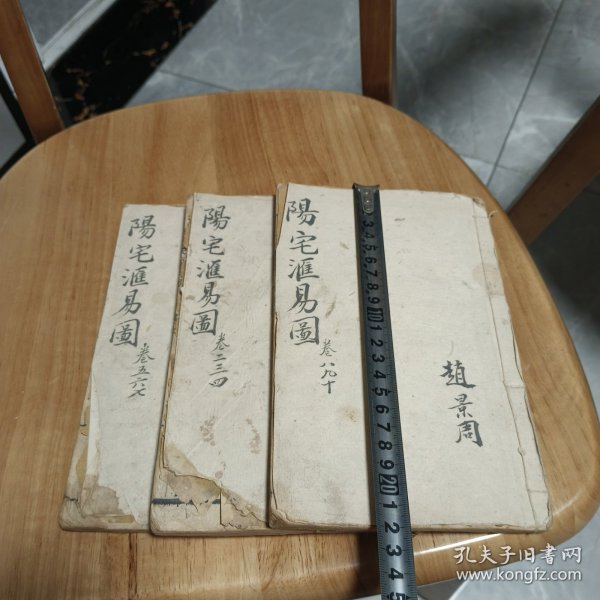 陽宅滙易圖
卷五六七
陽宅滙易圖
卷二三四
陽宅滙易圖
卷八九十
趙景周
3 4 5 6 7 8 9 10 1 2 3 4 5 6 7 8 9 20 1 2 3 4 5
孔夫子旧书网
www.kongfz.com